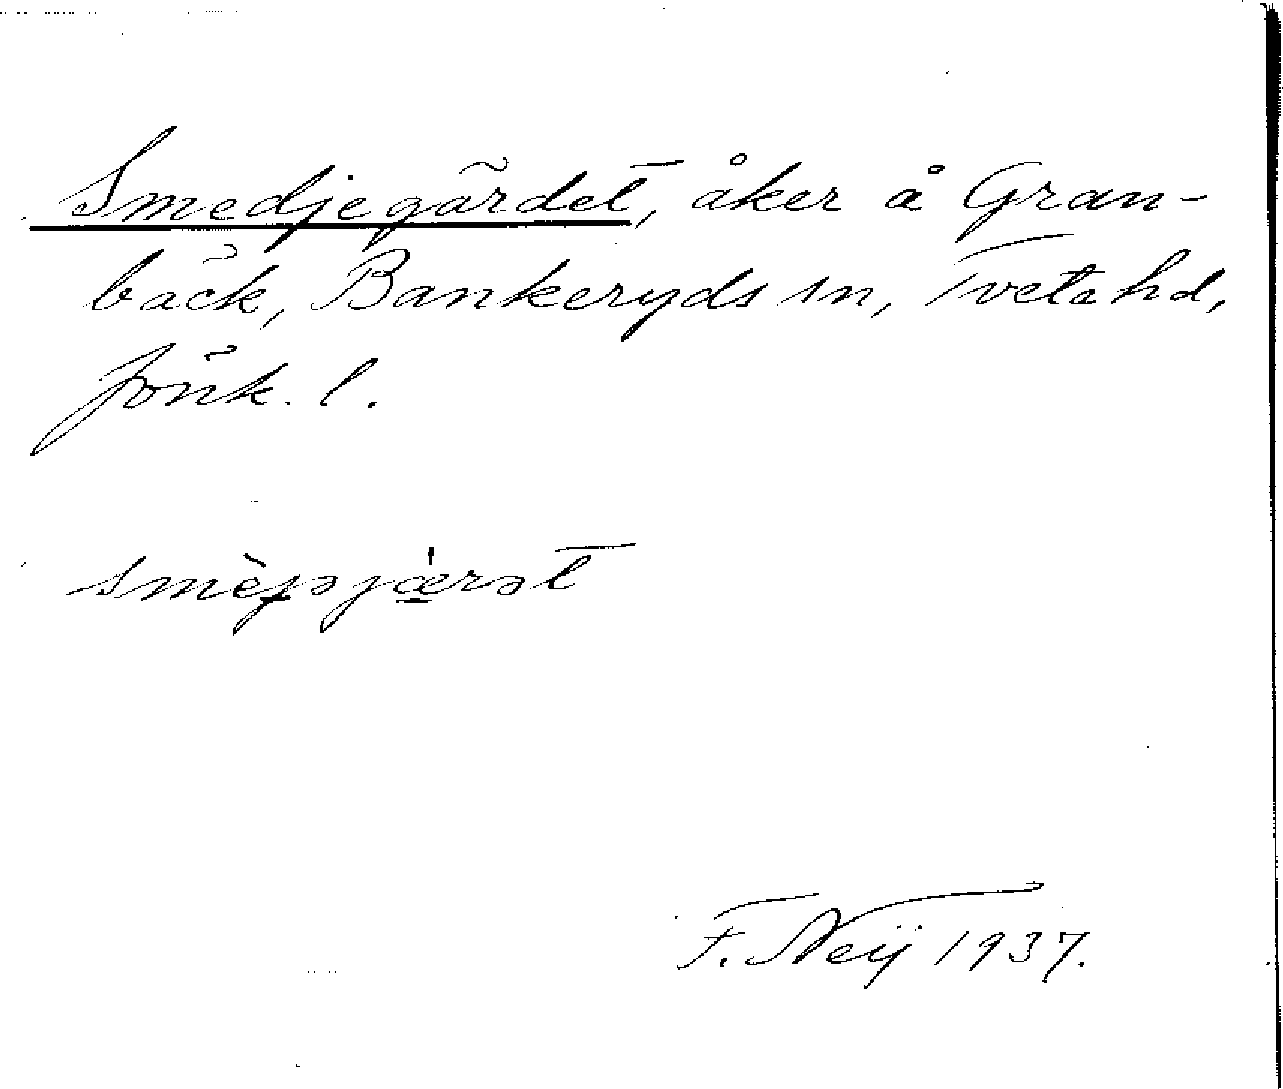 Smedjegärdet, åker å Gran-
bäck, Bankeryds sn, Tveta hd,
Jönk. l.
F. Neij 1937.